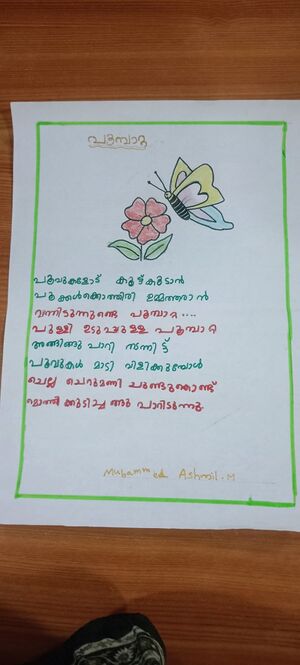 പൂമ്പാറ്റ
പൂവുകളോട് കൂട്ട്കൂടാൻ
പൂക്കൾക്കൊത്തിരി ഉമ്മതരാൻ
വന്നിടുന്നുണ്ടെ പൂമ്പാറ്റ....
പുള്ളി ഉടുപ്പുള്ള പൂമ്പാറ്റ
അങ്ങിങ്ങു പാറി നന്നിട്ട്
പൂവുകൾ മാടി വിളിക്കുമ്പോൾ
ചെല്ല ചെറുമണി ചുണ്ടുകൊണ്ട്
പാറിടുന്നു.
Muhammed Ashmil.M